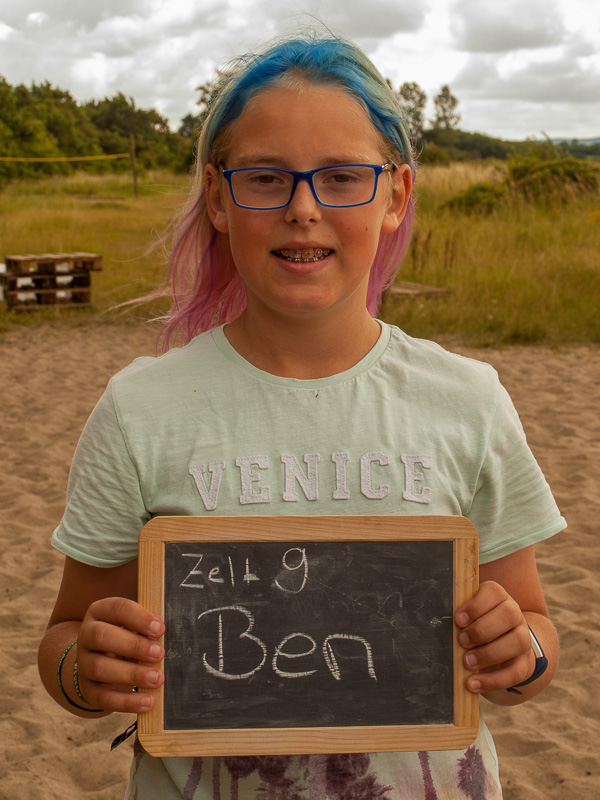 VENICE
Zelt 9
Ben